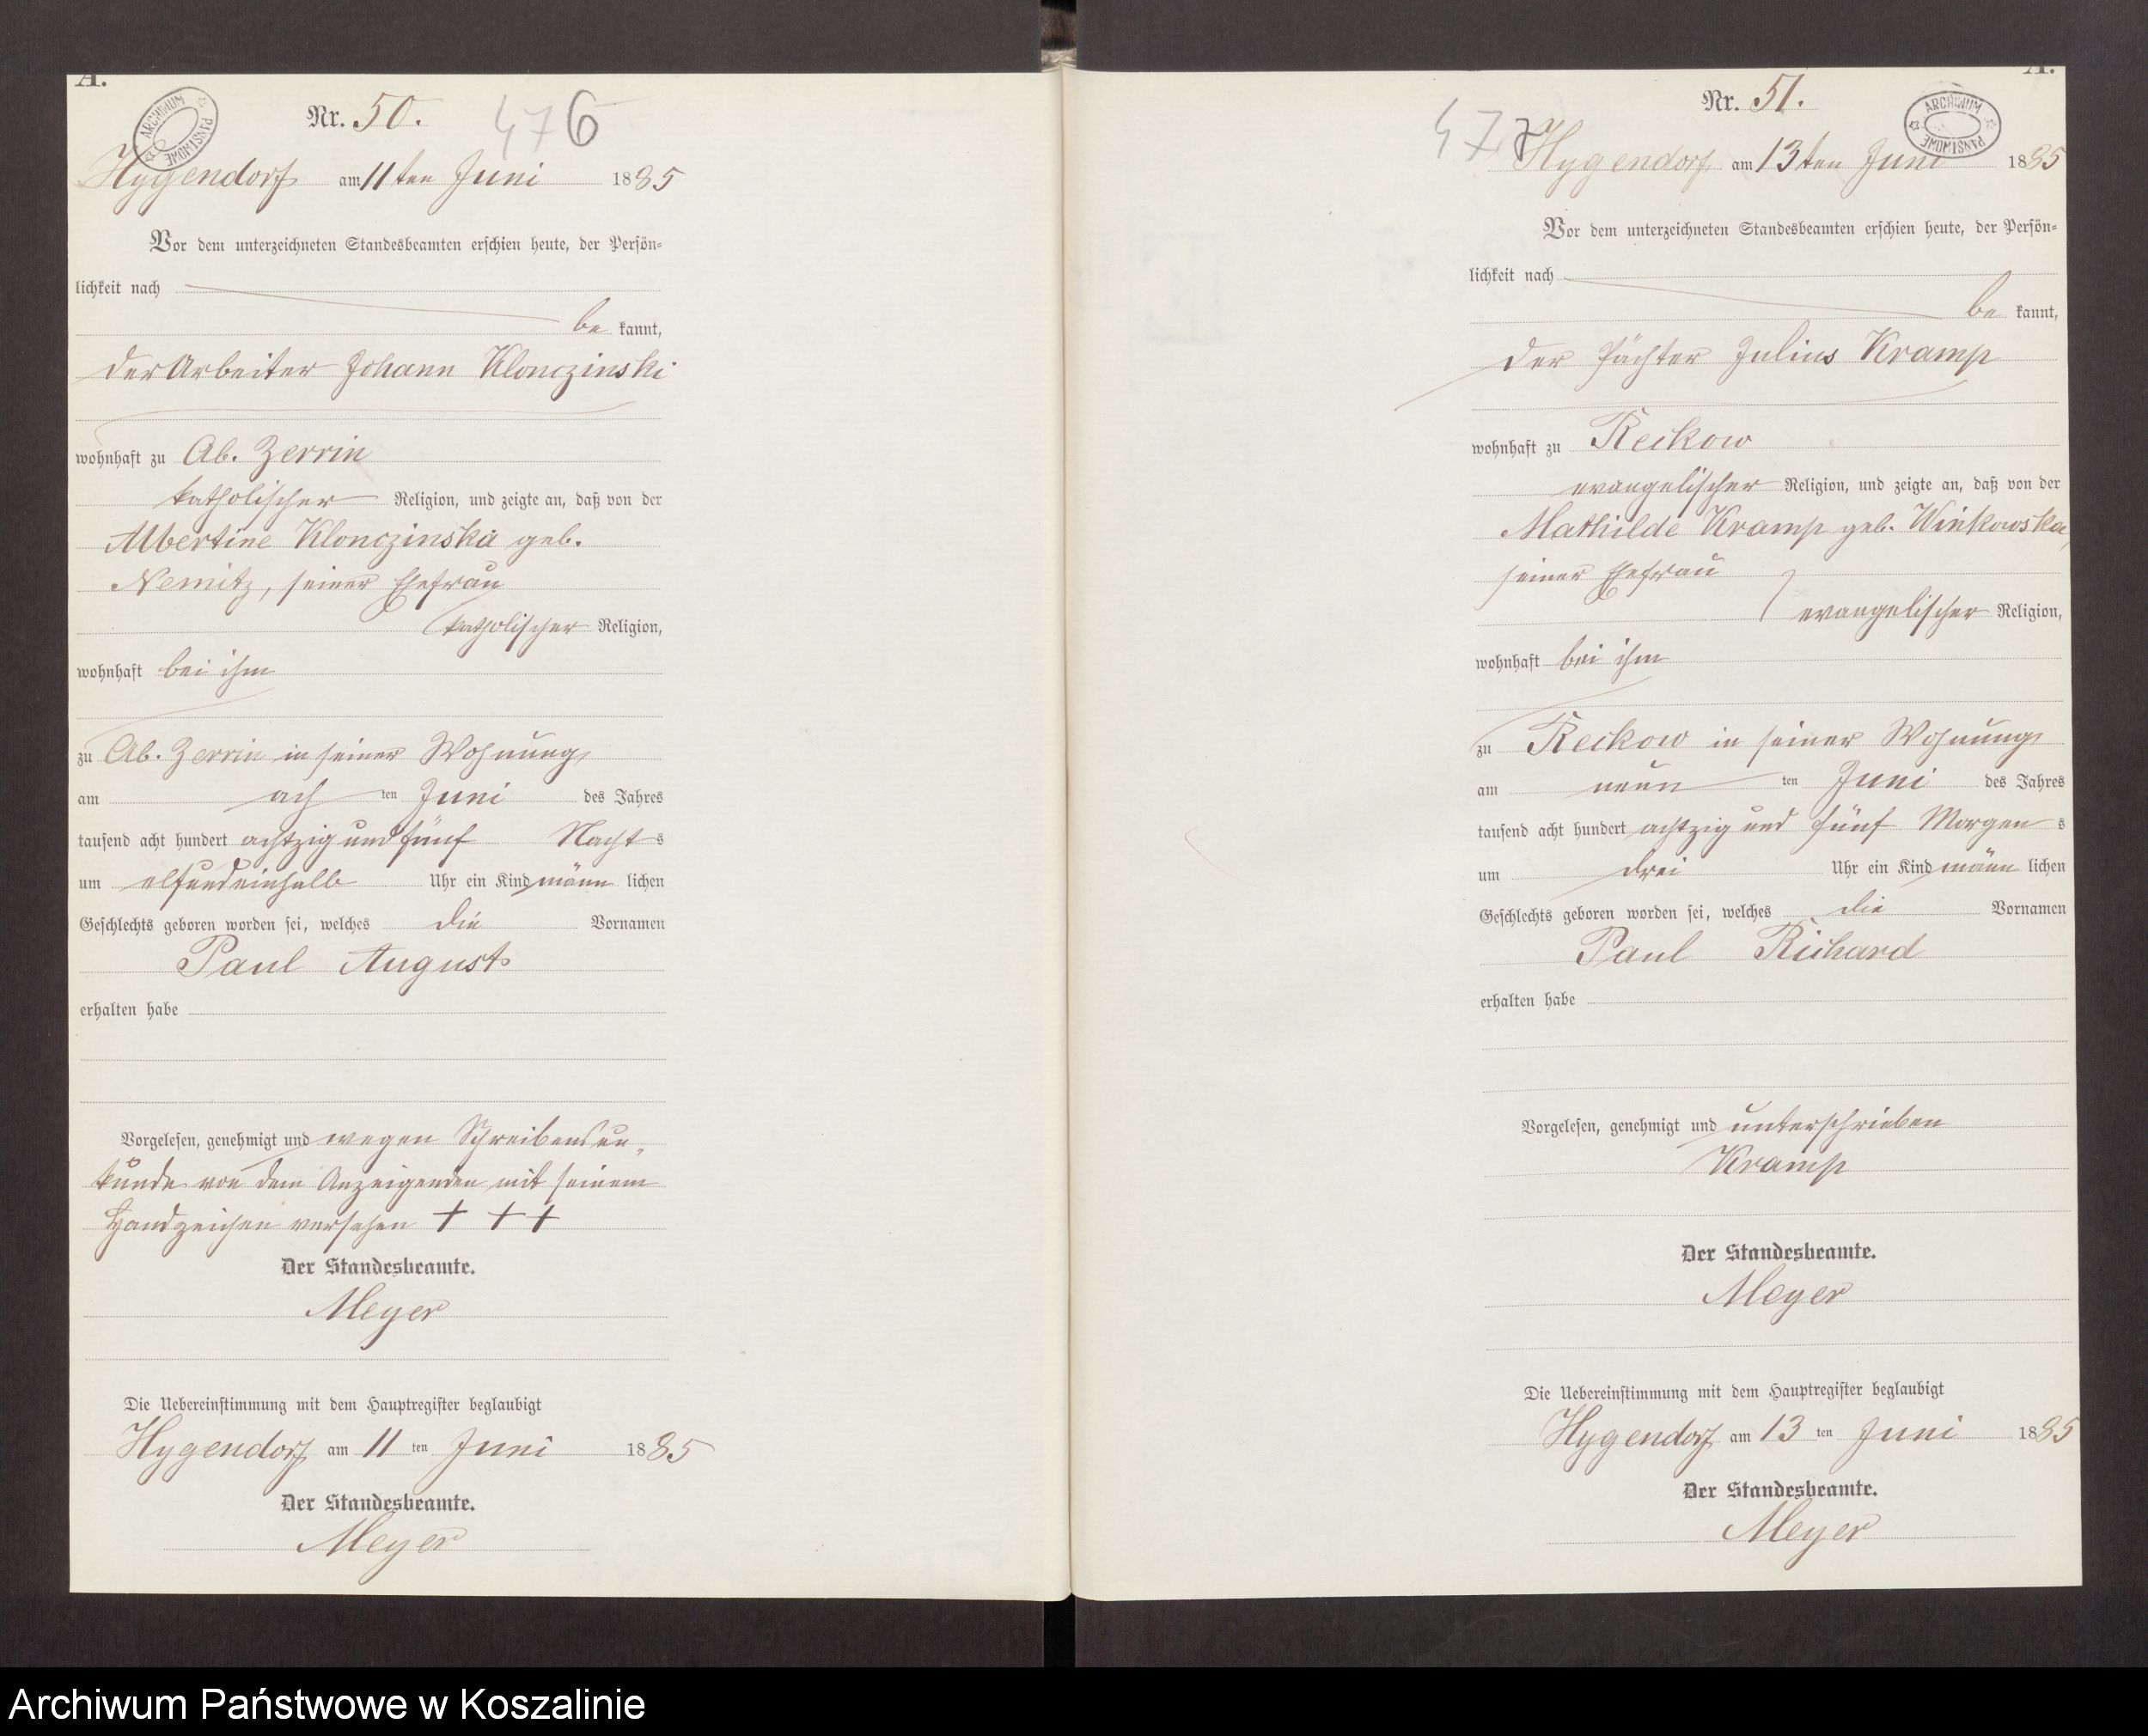 A.
Nr. 50.
476
ARCHIWUM PAŃSTWOWE
Hygendorf am 11ten Juni 1885
Vor dem unterzeichneten Standesbeamten erschien heute, der Persön-
lichkeit nach
be kannt,
der Arbeiter Johann Klonczinski
wohnhaft zu Ab. Zerrin
katholischer Religion, und zeigte an, daß von der
Albertine Klonczinska geb.
Nemitz, seiner Ehefrau
katholischer Religion,
wohnhaft bei ihm
zu Ab. Zerrin in seiner Wohnung
am ach ten Juni des Jahres
tausend acht hundert achtzig und fünf Nacht s
um elfundeinhalb Uhr ein Kind männ lichen
Geschlechts geboren worden sei, welches die Vornamen
Paul August
erhalten habe
Vorgelesen, genehmigt und wegen Schreibensun-
kunde von dem Anzeigenden mit seinem
Handzeichen versehen + + +
Der Standesbeamte.
Meyer
Die Uebereinstimmung mit dem Hauptregister beglaubigt
Hygendorf am 11 ten Juni 1885
Der Standesbeamte.
Meyer
A.
Nr. 51.
477
ARCHIWUM PAŃSTWOWE
Hygendorf am 13ten Juni 1885
Vor dem unterzeichneten Standesbeamten erschien heute, der Persön-
lichkeit nach
be kannt,
der Pächter Julius Kramp
wohnhaft zu Reckow
evangelischer Religion, und zeigte an, daß von der
Mathilde Kramp geb. Winkowska,
seiner Ehefrau
evangelischer Religion,
wohnhaft bei ihm
zu Reckow in seiner Wohnung
am neun ten Juni des Jahres
tausend acht hundert achtzig und fünf Morgen s
um drei Uhr ein Kind männ lichen
Geschlechts geboren worden sei, welches die Vornamen
Paul Richard
erhalten habe
Vorgelesen, genehmigt und unterschrieben
Kramp
Der Standesbeamte.
Meyer
Die Uebereinstimmung mit dem Hauptregister beglaubigt
Hygendorf am 13 ten Juni 1885
Der Standesbeamte.
Meyer
Archiwum Państwowe w Koszalinie